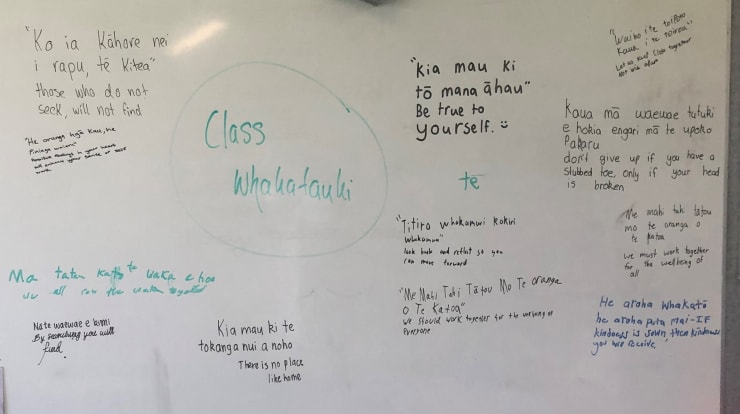 "Ko ia kāhore nei
i rapu, tē kitea"
those who do not
seek, will not find
"He oranga ngā kau, he
Positive feelings in your heart
will enhance your sense of self
worth
Class
Whakatauki
"Kia mau ki
tō mana āhau"
Be true to
yourself.
tē
"Waiho i te toipoto
Kaua i te toiroa"
Let us keep close together
Not wide apart
Kaua mā waewae tutuki
e hokia engari mā te upoko
Pakaru
don't give up if you have a
stubbed toe, only if your head
is broken
"Titiro whakamuri kokiri
whakamua"
look back and reflect so you
can move forward
Me mahi tahi tatou
mo te oranga o
te katoa
we must work together
for the wellbeing of
all
Ma tatou te waka e hoe
we all row the waka
"Me Mahi Tahi Tātou Mo Te oranga
O Te Katoa"
we should work together for the of
everyone
He aroha whakatō
he aroha puta mai-IF
kindness is sown, then kindness
you receive.
waewae e kimi
By searching you will
find.
Kia mau ki te
tokanga nui a noho
There is no place
like home